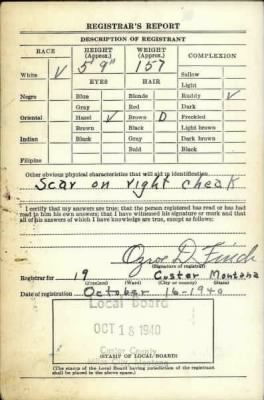 REGISTRAR'S REPORT
DESCRIPTION OF REGISTRANT
RACE HEIGHT (Approx.) WEIGHT (Approx.) COMPLEXION
5'9" 157
White V EYES HAIR Sallow
Light
Negro Blue Blonde Ruddy V
Gray Red Dark
Oriental Hazel V Brown D Freckled
Brown Black Light brown
Indian Black Gray Dark brown
Bald Black
Filipino
Other obvious physical characteristics that will aid in identification
Scar on right cheak
I certify that my answers are true; that the person registered has read or has had
read to him his own answers; that I have witnessed his signature or mark and that
all of his answers of which I have knowledge are true, except as follows:
D. Finch
(Signature of registrar)
Registrar for 19 Custer Montana
(Precinct) (Ward) (City or county) (State)
Date of registration October 16-1940
Local Board
OCT 18 1940
Custer County
Miles City, Montana
(STAMP OF LOCAL BOARD)
(The stamp of the Local Board having jurisdiction of the registrant
shall be placed in the above space.)